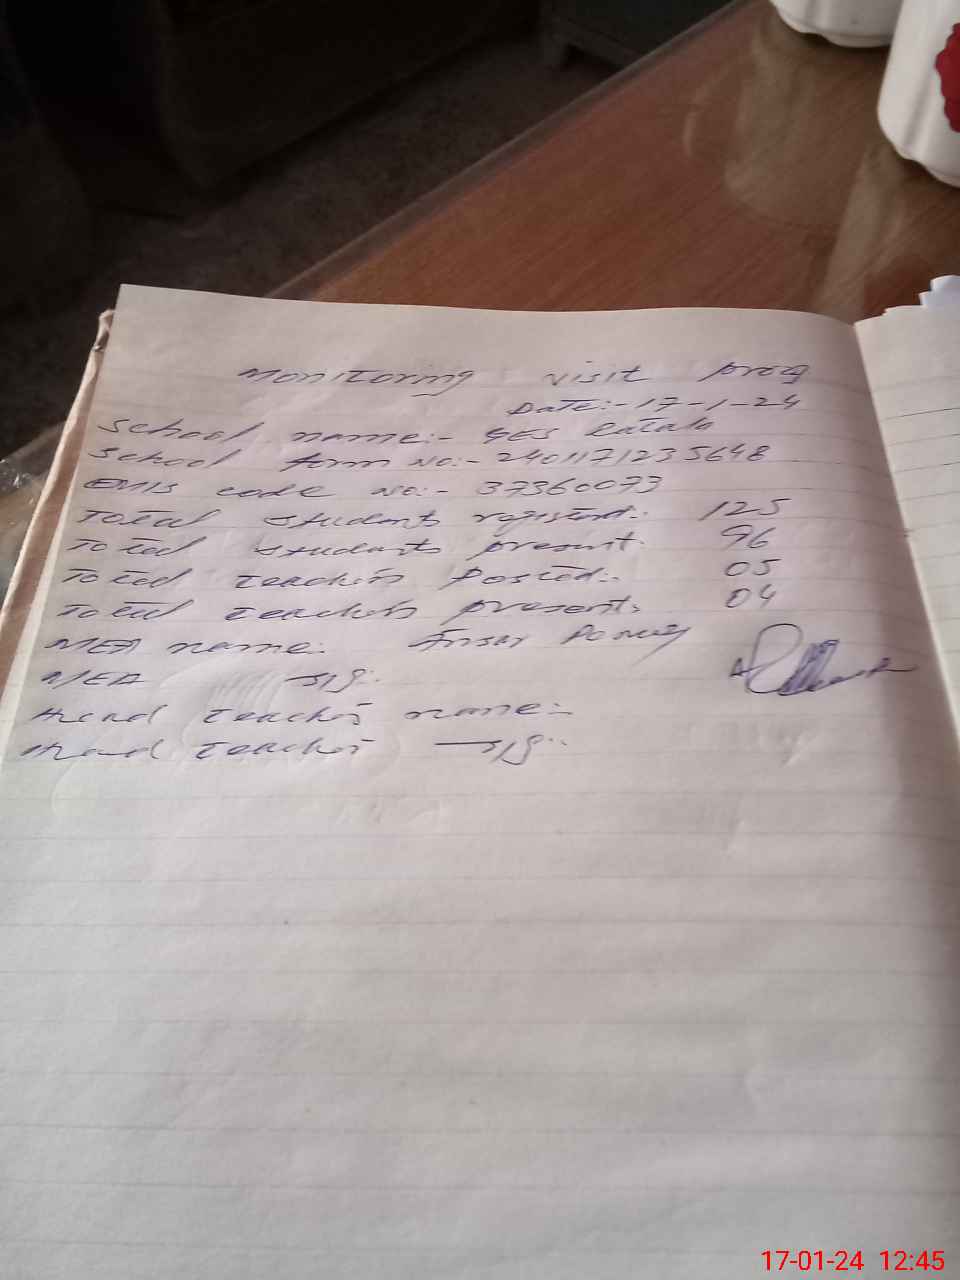 Monitoring visit prog
Date:- 17-1-24
School name:- GES Ratala
School form no:- 2401171235648
EMIS code no:- 37360073
Total students registerd:- 125
Total students present:- 96
Total teachers Posted:- 05
Total teachers present:- 04
MEA name:- Ansar
MEA sig:-
Head teacher name:-
Head teacher sig:-
17-01-24 12:45